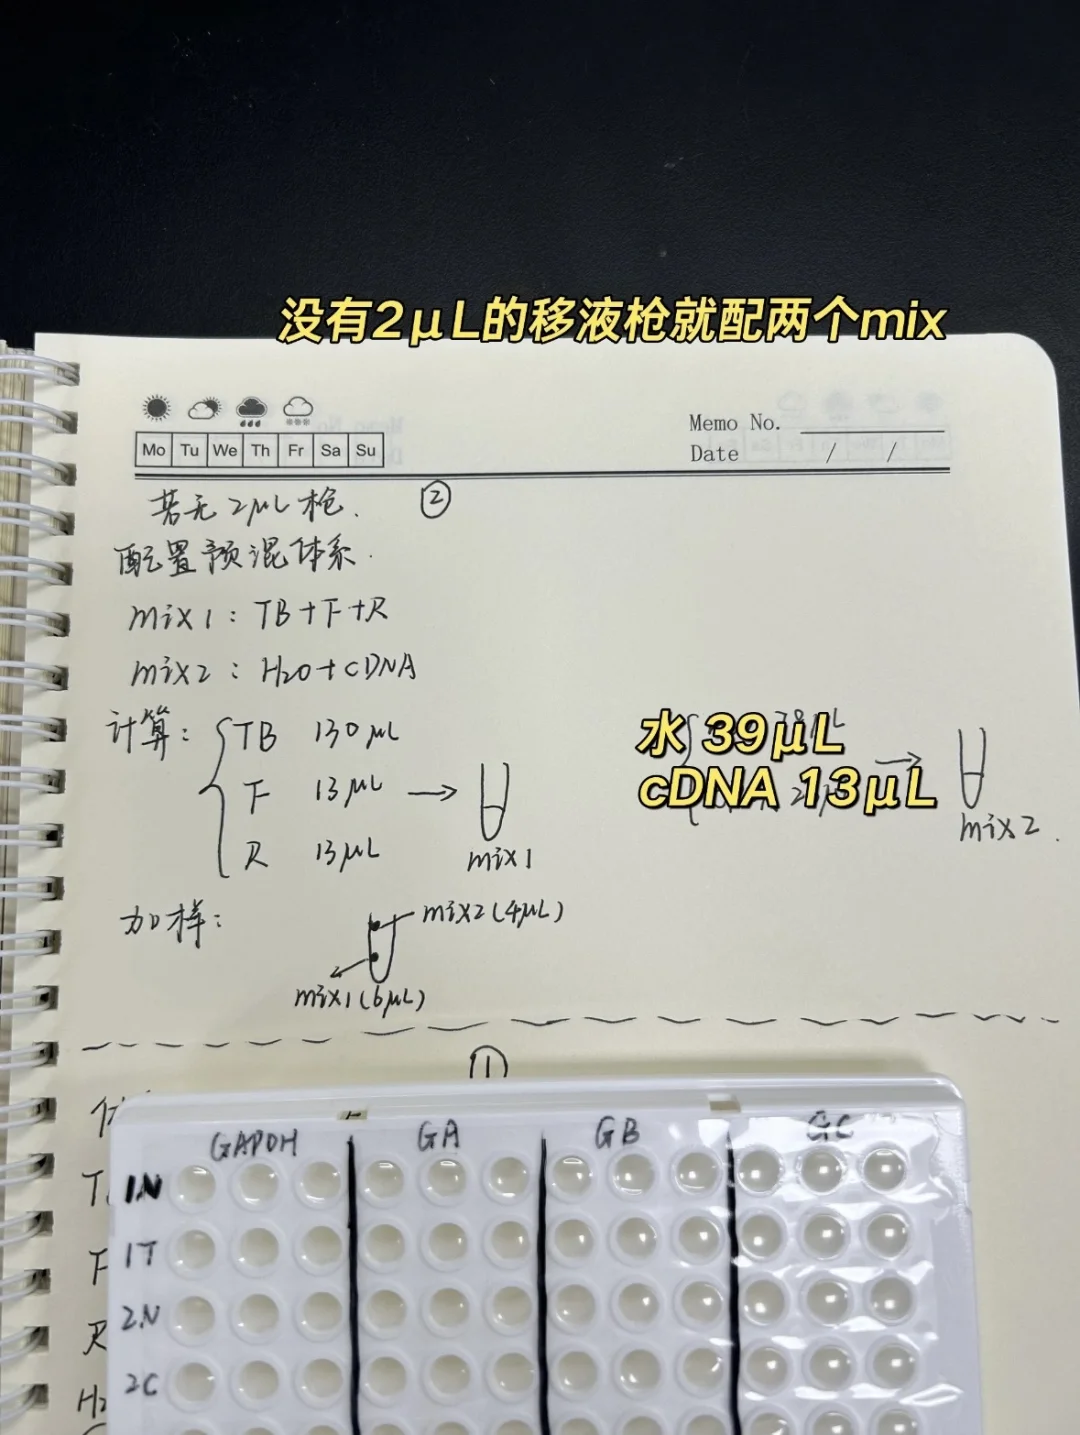 没有2μL的移液枪就配两个mix
Memo No.
Mo Tu We Th Fr Sa Su
Date / /
若无2μL枪. ②
配置预混体系.
mix1: TB+F+R
mix2: H2O+cDNA
计算: TB 130μL
F 13μL →
R 13μL
mix1
水 39μL
cDNA 13μL
→
mix2.
加样:
mix2(4μL)
mix1(6μL)
①
GAPDH GA GB GC
1N
1T
2N
2C
T
F
R
H2